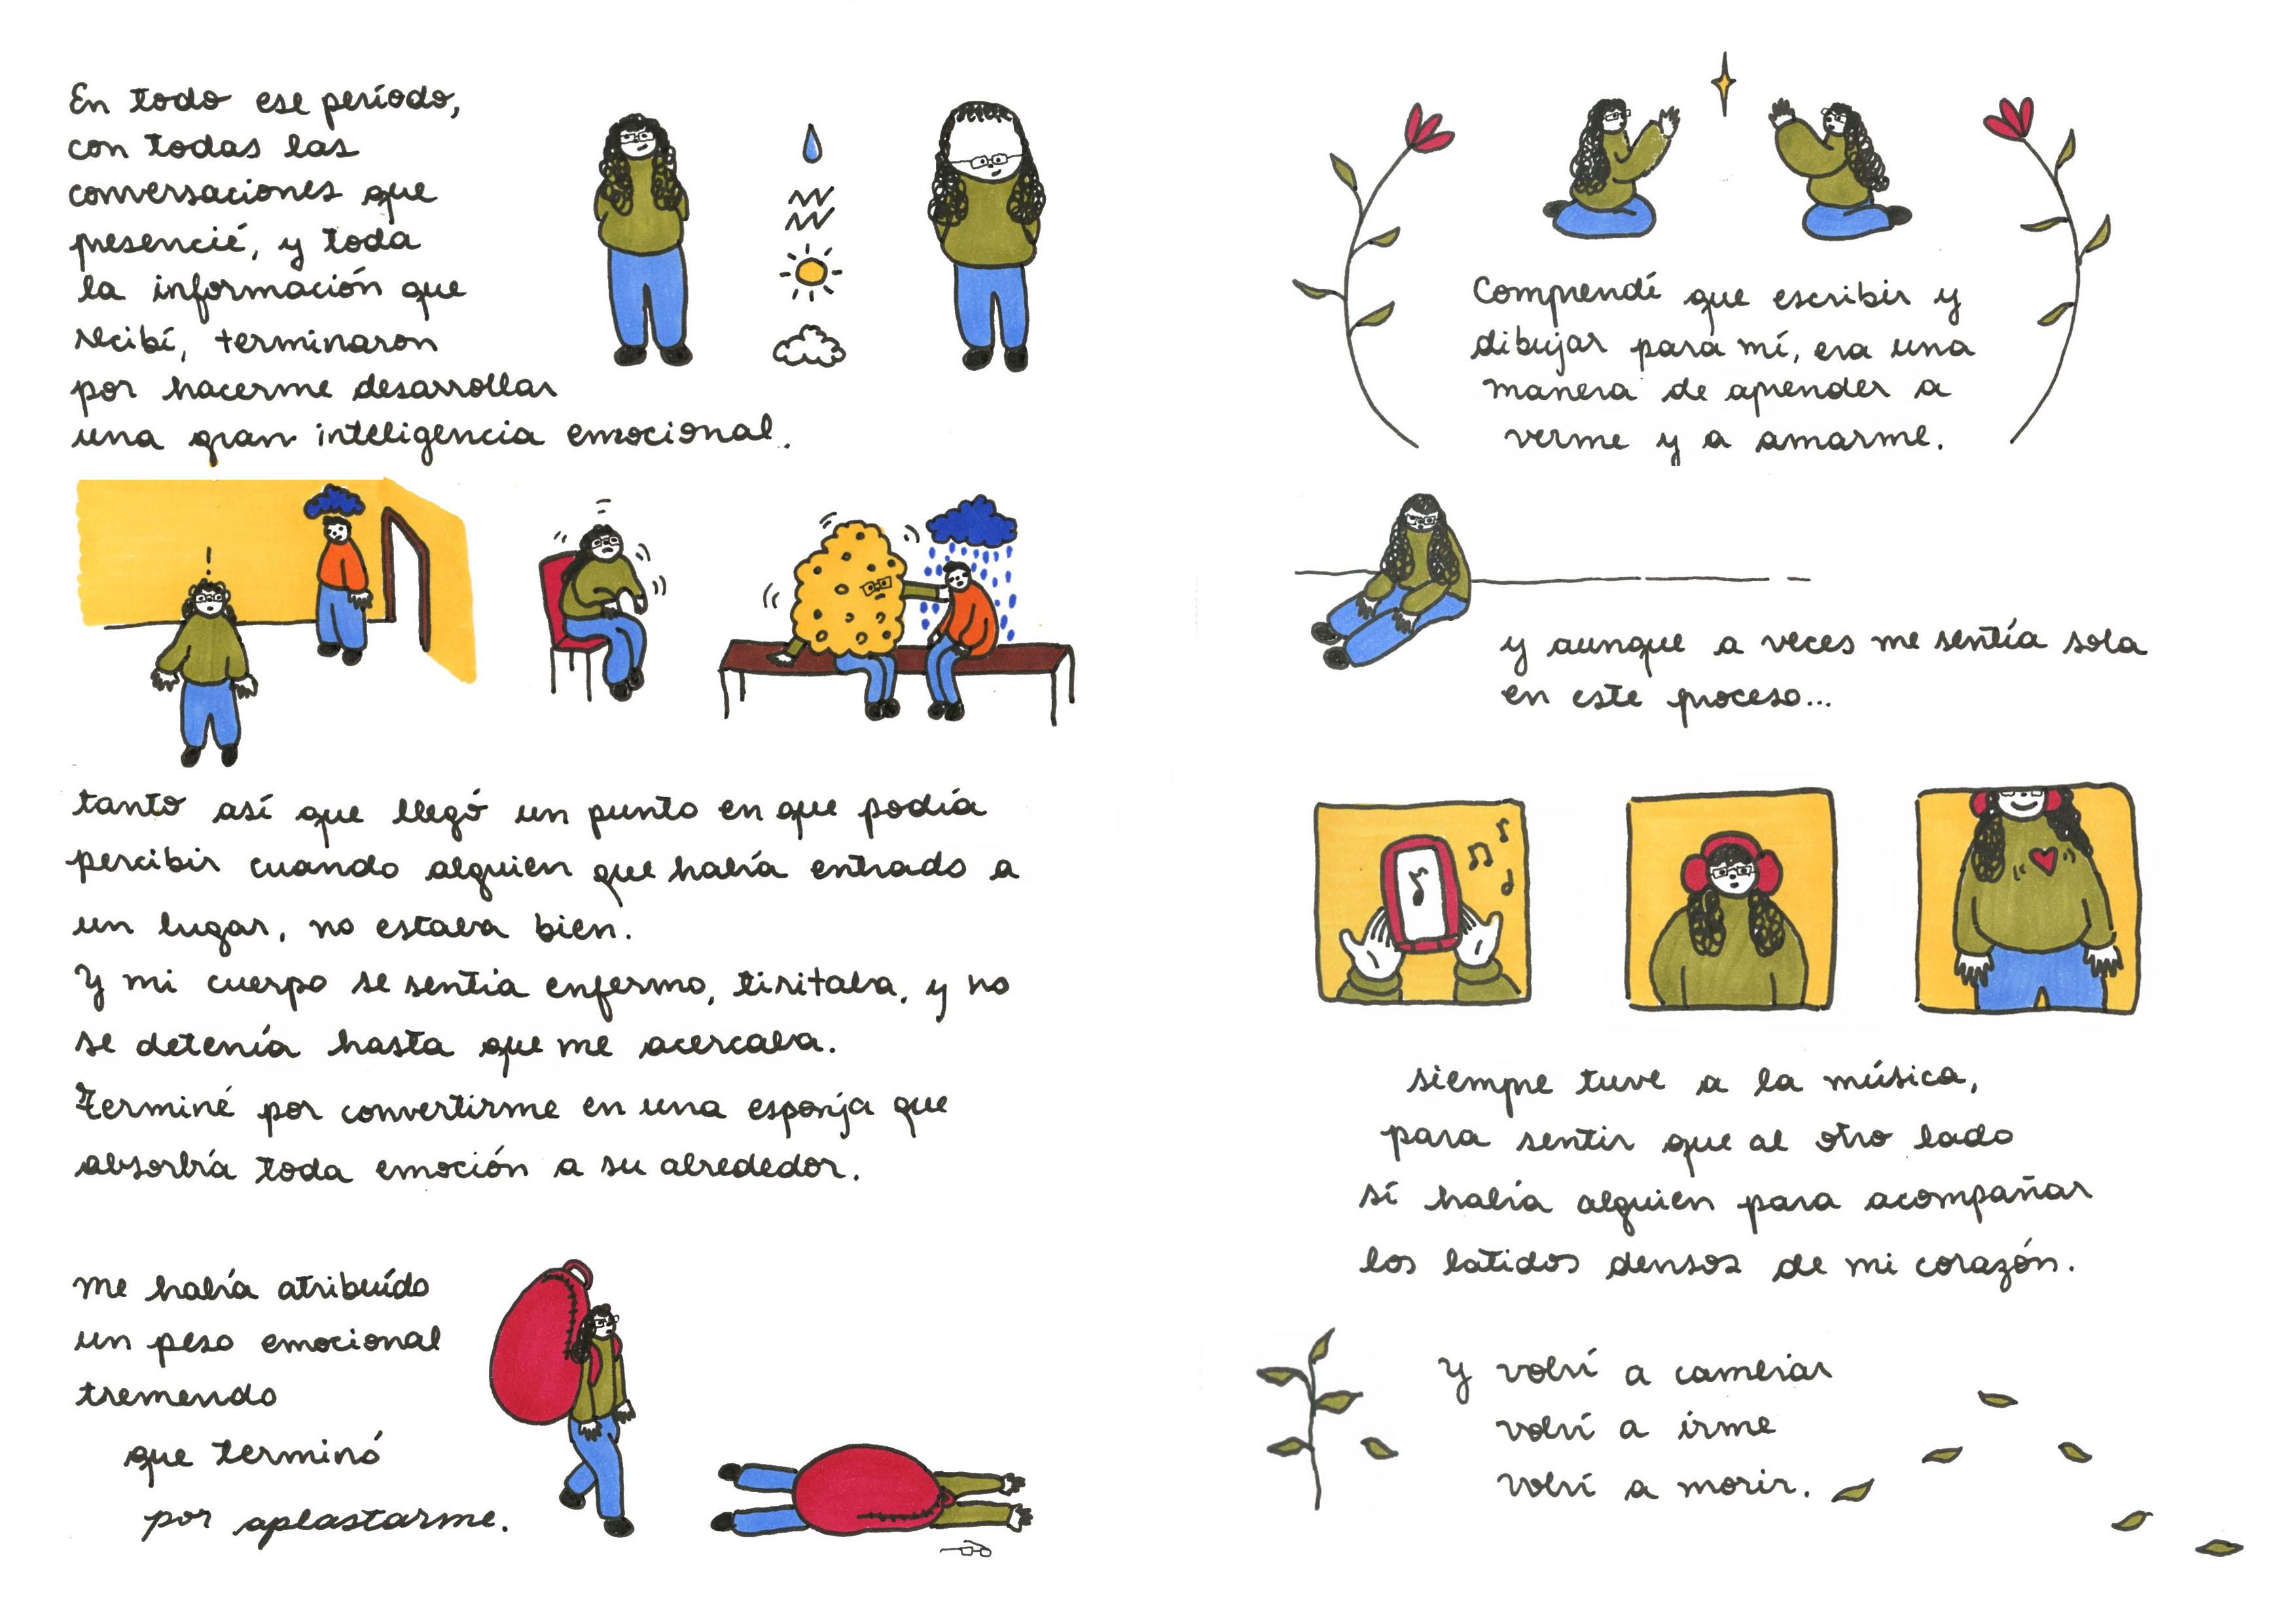 En todo ese período,
con todas las
conversaciones que
presencié, y toda
la información que
recibí, terminaron
por hacerme desarrollar
una gran inteligencia emocional.
tanto así que llegó un punto en que podía
percibir cuando alguien que había entrado a
un lugar, no estaba bien.
Y mi cuerpo se sentía enfermo, tiritaba, y no
se detenía hasta que me acercaba.
Terminé por convertirme en una esponja que
absorbía toda emoción a su alrededor.
me había atribuído
un peso emocional
tremendo
que terminó
por aplastarme.
Comprendí que escribir y
dibujar para mí, era una
manera de aprender a
verme y a amarme.
y aunque a veces me sentía sola
en este proceso...
siempre tuve a la música,
para sentir que al otro lado
sí había alguien para acompañar
los latidos densos de mi corazón.
Y volví a cambiar
volví a irme
volví a morir.